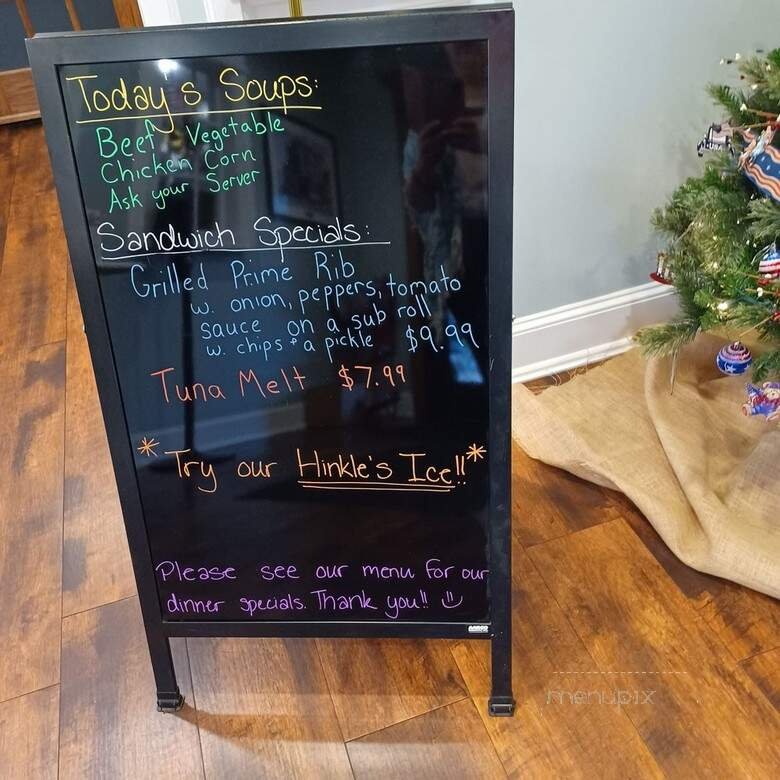 Today's Soups:
Beef Vegetable
Chicken Corn
Ask your Server
Sandwich Specials:
Grilled Prime Rib
w. onion, peppers, tomato
sauce on a sub roll
w. chips + a pickle $9.99
Tuna Melt $7.99
* Try our Hinkle's Ice!! *
Please see our menu for our
dinner specials. Thank you!! :)
menupix